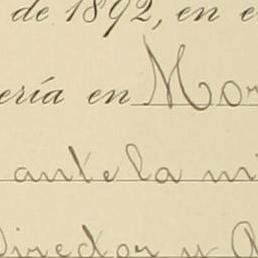 de 1892, en e
ería en Mor
ante la mi
Director y A